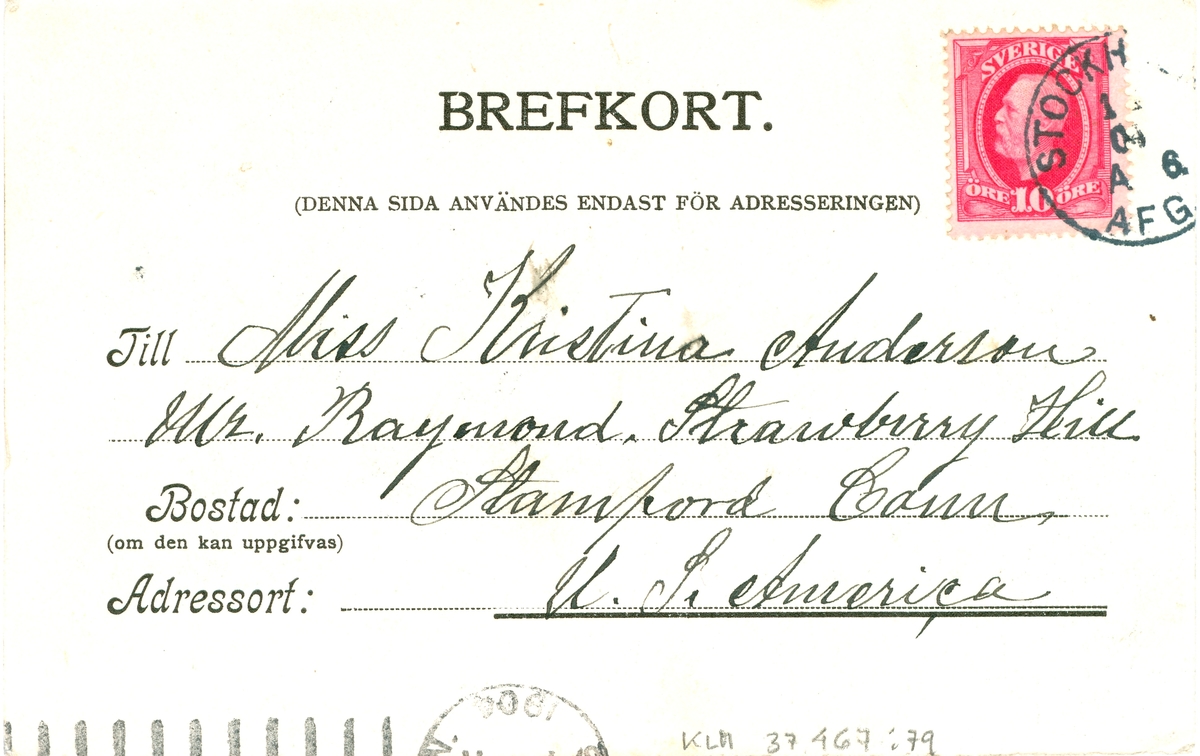 BREFKORT.
(DENNA SIDA ANVÄNDES ENDAST FÖR ADRESSERINGEN)
SVERIGE
ÖRE 10 ÖRE
STOCKH
1
A 6
AFG.
Till Miss Kristina Anderson
Mr. Raymond. Strawberry Hill
Bostad: Stamford Conn.
(om den kan uppgifvas)
Adressort: U. S. America
1904
KLM 37 467:79